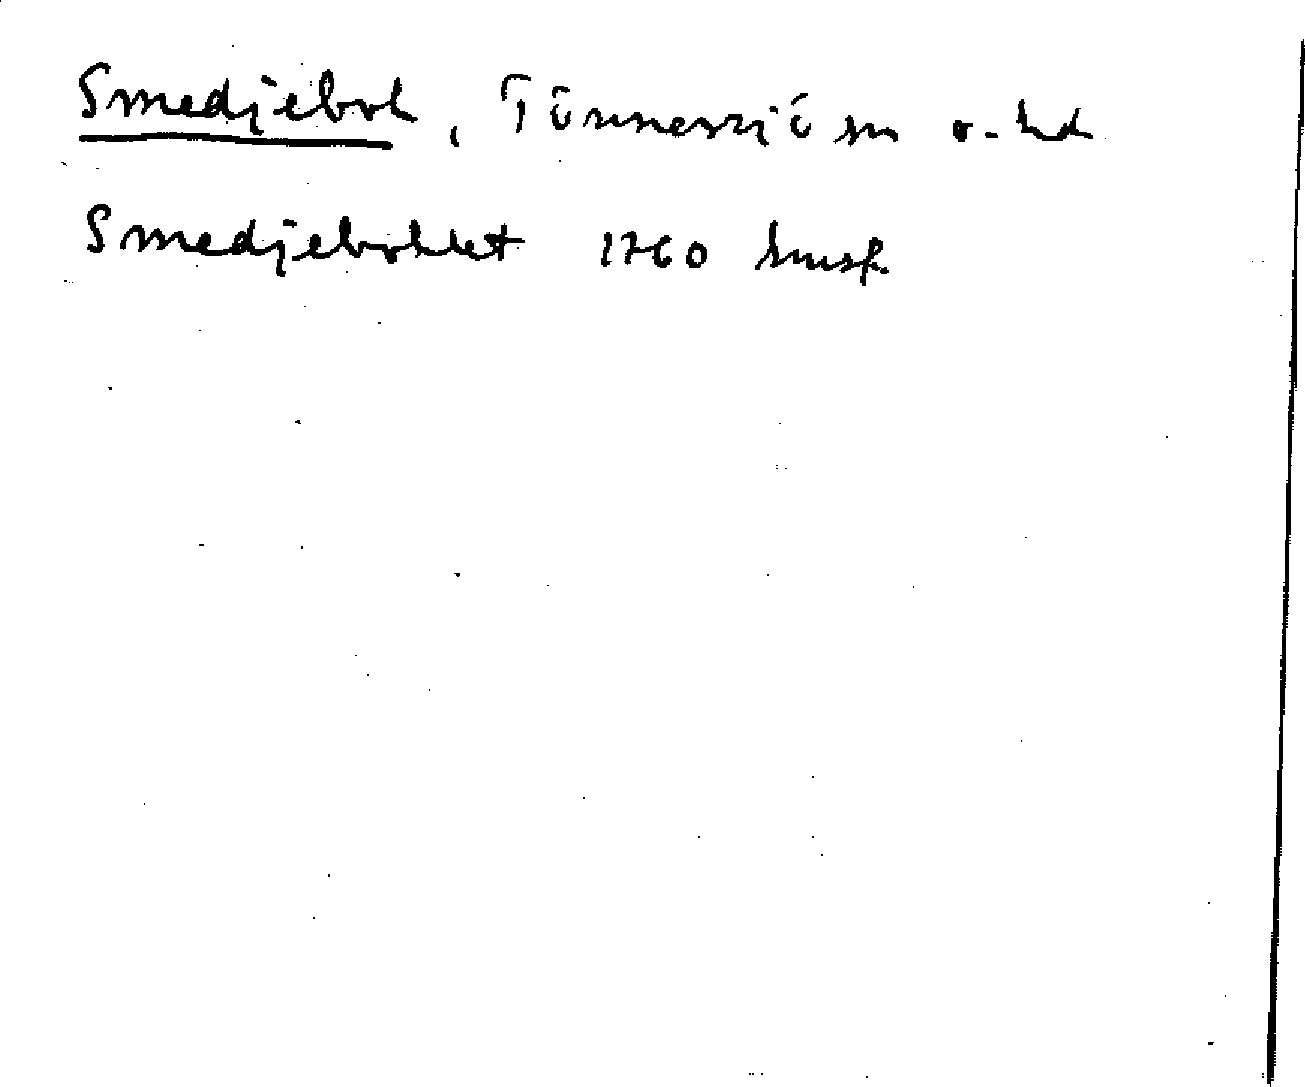 Smedjebol, Tönnersjö sn o. hd
Smedjebohlet 1760 husf.